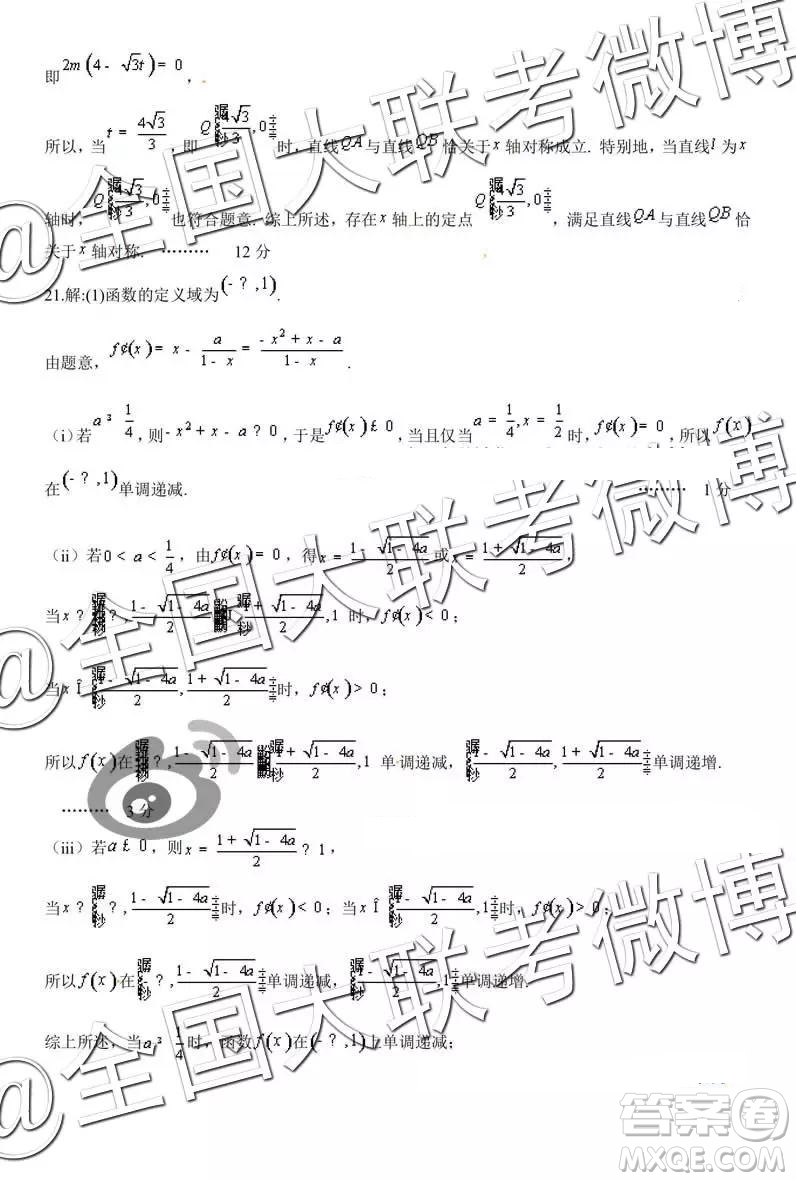 即2m(4- √3t)= 0 ，
所以，当t = 4√3/3，即Q(4√3/3,0)时，直线QA与直线QB恰关于x轴对称成立. 特别地，当直线l为x
轴时，Q(4√3/3,0)也符合题意. 综上所述，存在x轴上的定点Q(4√3/3,0)，满足直线QA与直线QB恰
关于x轴对称. ……… 12分
21.解:(1)函数的定义域为(- ?,1).
由题意，f¢(x)= x - a/(1- x) = (- x²+ x - a)/(1- x) .
(i)若a ³ 1/4，则- x²+ x - a ? 0，于是f¢(x)£ 0，当且仅当a = 1/4,x = 1/2时，f¢(x)= 0，所以f(x)
在(- ?,1)单调递减. ……… 1分
（ii）若0 < a < 1/4，由f¢(x)= 0，得x = (1- √(1- 4a))/2或x = (1+ √(1- 4a))/2,
当x ? ?,(1- √(1- 4a))/2 (1+ √(1- 4a))/2,1 时，f¢(x)< 0；
当x Î (1- √(1- 4a))/2,(1+ √(1- 4a))/2时，f¢(x)> 0；
所以f(x)在 ?,(1- √(1- 4a))/2 (1+ √(1- 4a))/2,1 单调递减，(1- √(1- 4a))/2,(1+ √(1- 4a))/2单调递增.
……… 3分
（iii）若a £ 0，则x = (1+ √(1- 4a))/2 ? 1，
当x ? ?,(1- √(1- 4a))/2时，f¢(x)< 0；当x Î (1- √(1- 4a))/2,1时，f¢(x)> 0；
所以f(x)在 ?,(1- √(1- 4a))/2单调递减，(1- √(1- 4a))/2,1单调递增.
综上所述，当a ³ 1/4时，函数f(x)在(- ?,1)上单调递减；
@全国大联考微博
@全国大联考微博
答案卷
MXQE.COM